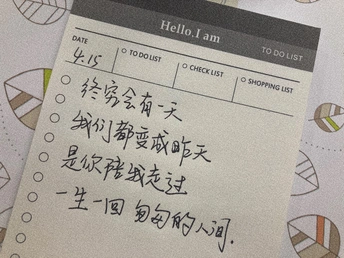 Hello.I am
TO DO LIST
DATE
TO DO LIST
CHECK LIST
SHOPPING LIST
4.15
终究会有一天
我们都变成昨天
是你陪我走过
一生一回 匆匆的人间.